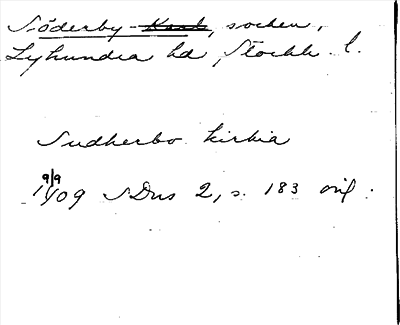 Söderby-Karl, socken,
Lyhundra hd, Stockh. l.
Sudherbo kirkia
9/9
1409 SDns 2, s. 183 orig.